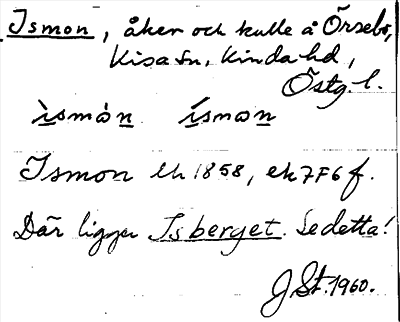 Ismon, åker och kulle å Örsebo,
Kisa sn, Kinda hd,
Östg. l.
ìsmò̱n ísmon
Ismon lh 1858, ek 7F6f.
Där ligger Isberget. Se detta!
J St. 1960.